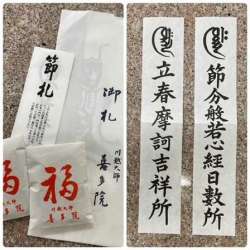 節札
御札
川越大師
喜多院
福
川越大師
喜多院
福
節分般若心経日数所
立春摩訶吉祥所